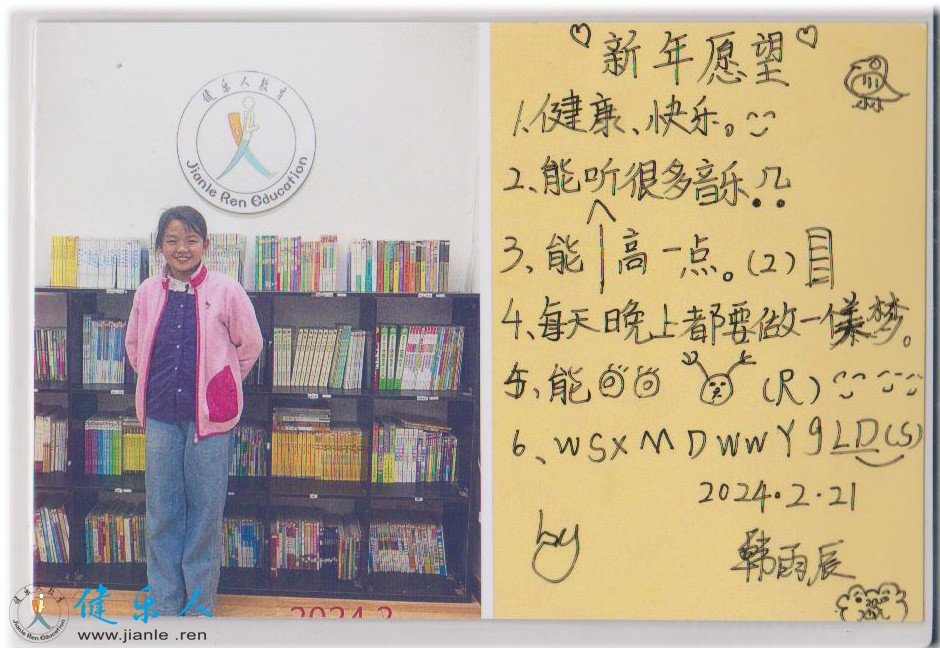 健乐人教育
Jianle Ren Education
新年愿望
1.健康、快乐。
2、能听很多音乐
3、能高一点。(2)
4、每天晚上都要做一美梦。
5、能 (尺)
6、WSXMDWWYGLD(S)
2024.2.21
by
韩雨辰
2024.2
健乐人教育
Jianle Ren Education
健乐人
www.jianle .ren